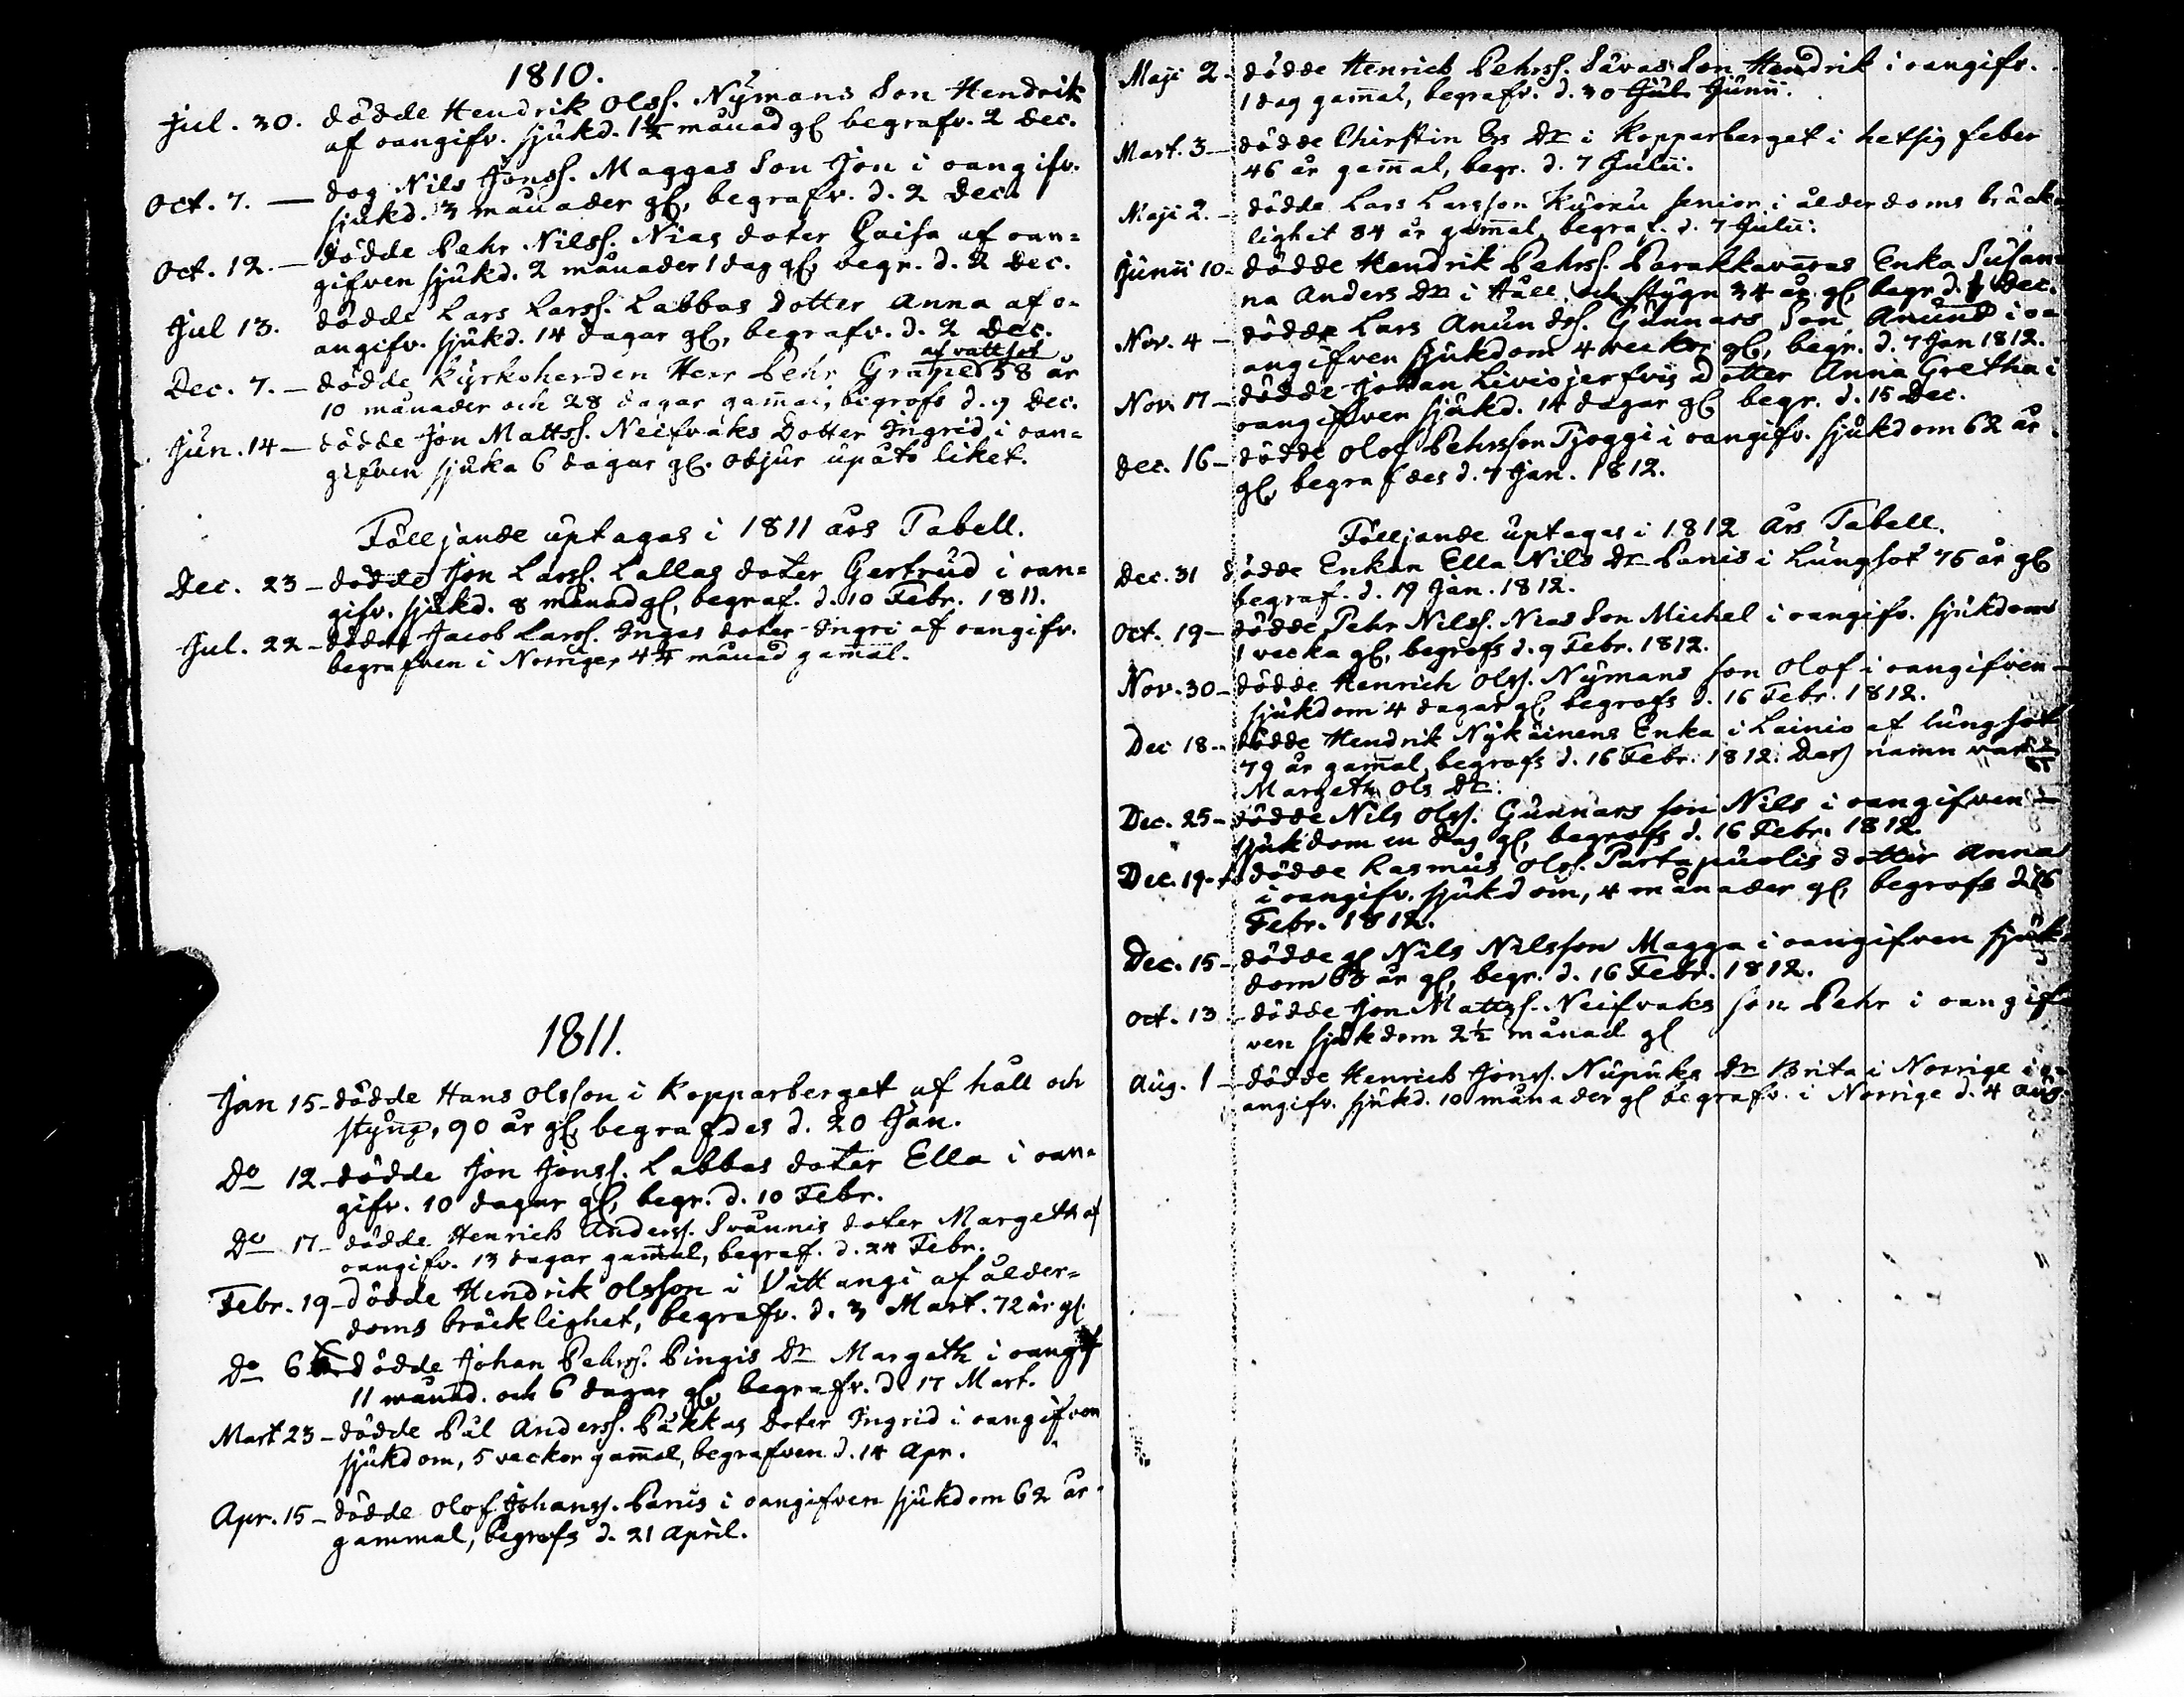 1810.
Jul. 30. dödde Hendrik Olss. Nymans Son Hendrik
af oangifv. sjukd. 1¾ månad gl begrafv. 2 Dec.
Oct. 7. — dog Nils Jonss. Maggas Son Jon i oangifv.
sjukd. 3 månader gl, begrafv. d. 2 Dec.
Oct. 12. — dödde Pehr Nilss. Nias doter Gaisa af oan=
gifven sjukd. 2 månader 1 dag gl, begr. d. 2 Dec.
Jul 13. dödde Lars Larss. Labbas Dotter Anna af o-
angifv. sjukd. 14 dagar gl, begrafv. d. 2 Dec.
af vattsot
Dec. 7. — dödde Kyrkoherden Herr Pehr Grape 58 år
10 månader och 28 dagar gam̄al, begrofs d. 9 Dec.
Jun. 14 — dödde Jon Mattss. Neifvaks Dotter Ingrid i oan=
gifven sjuka 6 dagar gl. Odjur upåto liket.
Följjande uptagas i 1811 års Tabell.
Dec. 23 — dödde Jon Larss. Lallas doter Gertrud i oan=
gifv. sjukd. 8 månad gl, begraf. d. 10 Febr. 1811.
Jul. 22 — dödde Jacob Larss. Ingas doter Ingri af oangifv.
begrafven i Norrige, 4¼ månad gam̄al.
1811.
Jan 15 — dödde Hans Olsson i Kopparberget af håll och
styng, 90 år gl, begrafdes d. 20 Jan.
Do 12 — dödde Jon Jonss. Labbas doter Ella i oan=
gifv. 10 dagar gl, begr. d. 10 Febr.
Do 17 — dödde Henrich Anderss. Svaunis doter Margeth af
oangifv. 13 dagar gam̄al, begraf. d. 24 Febr.
Febr. 19 — dödde Hendrik Olsson i Vittangi af ålder=
doms bräcklighet, begrafv. d. 3 Mart. 72 år gl.
Do 6 — dödde Johan Pehrss. Pingis Dr Margeth i oangif
11 månad. och 6 dagar gl, begrafv. d. 17 Mart.
Mart 23 — dödde Pål Anderss. Påkkas Doter Ingrid i oangifven
sjukdom, 5 veckor gam̄al, begrafven d. 14 Apr.
Apr. 15 — dödde Olof Johanss. Panis i oangifven sjukdom 62 år
gammal, begrofs d. 21 April.
Maji 2 — dödde Henrich Pehrss. Savas Son Hendrik i oangifv.
1 dag gam̄al, begrafv. d. 30 Jul. Junii.
Mart. 3 — dödde Chirstin Ers Dr i Kopparberget i hetsig feber
46 år gam̄al, begr. d. 7 Julii.
Maji 2. — dödde Lars Larsson Kyrou senior i ålderdoms bräck-
lighet 84 år gam̄al, begraf. d. 7 Julii.
Junii 10 — dödde Hendrik Pehrss. Parakkavaras Enka Susan-
na Anders Dr i Håll och stygn 34 år gl, begr. d. 1 Dec.
Nov. 4 — dödde Lars Anundss. Gunnars Son Anund i o=
angifven sjukdom 4 veckor gl, begr. d. 7 Jan 1812.
Nov. 17 — dödde Johan Liviojerfvis Dotter Anna Gretha i
oangifven sjukd. 14 dagar gl, begr. d. 15 Dec.
Dec. 16 — dödde Olof Pehrsson Tjoggi i oangifv. sjukdom 62 år
gl, begrafdes d. 7 Jan. 1812.
Följjande uptagas i 1812 års Tabell.
Dec. 31 dödde Enkan Ella Nils Dr Panis i Lungsot 76 år gl
begraf. d. 19 Jan. 1812.
Oct. 19 — dödde Pehr Nilss. Nias Son Michel i oangifv. sjukdom
1 vecka gl, begrofs d. 9 Febr. 1812.
Nov. 30 — dödde Henrich Olss. Nymans son Olof i oangifven
sjukdom 4 dagar gl, begrofs d. 16 Febr. 1812.
Dec 18 — dödde Hendrik Nykäinens Enka i Lainio af lungsot
79 år gam̄al, begrofs d. 16 Febr. 1812. Dess namn var
Margeth Ols Dr.
Dec. 25 — dödde Nils Olss. Gunnars son Nils i oangifven
sjukdom en dag gl, begrofs d. 16 Febr. 1812.
Dec. 19 — dödde Rasmus Olss. Partapuolis dotter Anna
i oangifv. sjukdom, 4 månader gl, begrofs d. 16
Febr. 1812.
Dec. 15 — dödde gl Nils Nilsson Magga i oangifven sjuk-
dom 63 år gl, begr. d. 16 Febr. 1812.
Oct. 13 — dödde Jon Mattss. Neifvaks son Pehr i oangif-
ven sjukdom 2½ månad gl
Aug. 1 — dödde Henrich Jonss. Nupuks Dr Brita i Norrige i o-
angifv. sjukd. 10 månader gl begrafv. i Norrige d. 4 Aug.